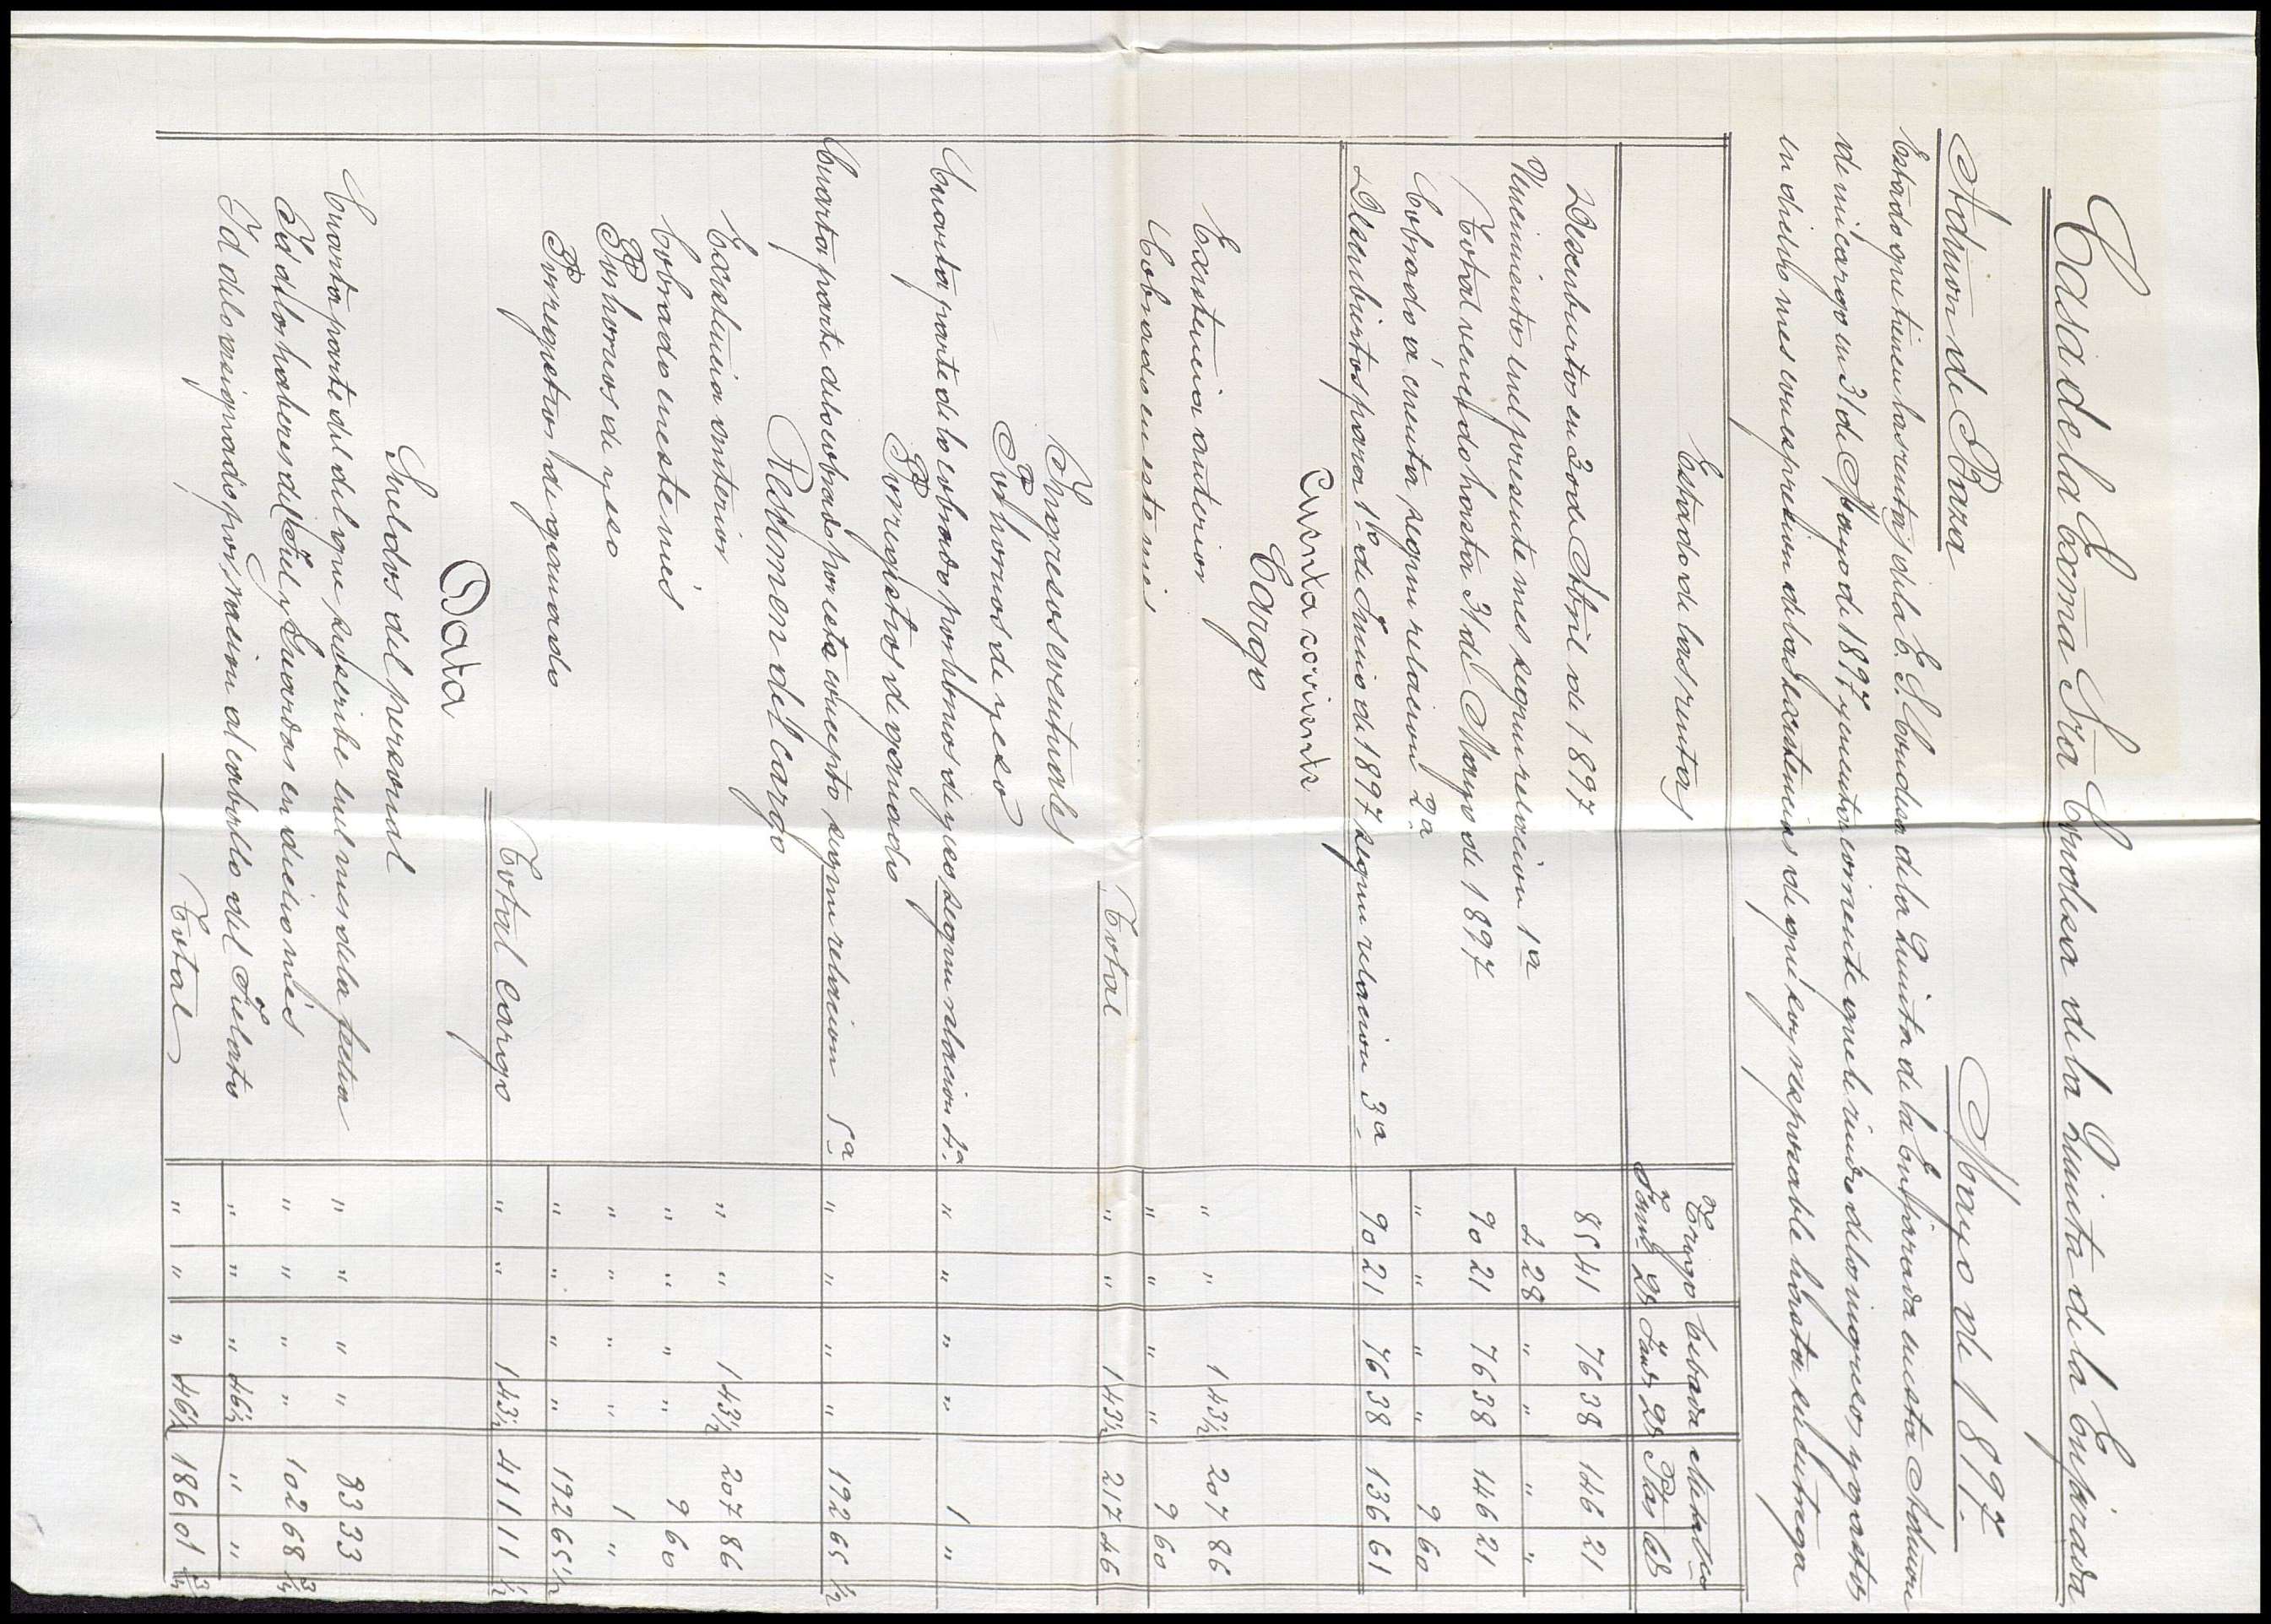 Casa de la Exma Sra Condesa de la Quinta de la Enjarada
Admon de Baza Mayo de 1897.
Estado que tienen las rentas de la E. S. Condesa de la Quinta de la Enjarada en esta Admon
de mi cargo en 31 de Mayo de 1897 y cuenta corriente que le rindo de los ingresos y gastos
en dicho mes con espresion de las existencias de que soy responsable hasta su entrega
Estado de las rentas Trigo Cebada Metalico
Fans Qs Fans Qs Ptas Cs
Descubiertos en 30 de Abril de 1897 85 41 76 38 146 21
Vencimientos en el presente mes segun relacion 1ª 4 28 " " " "
Total vencido hasta 31 de Mayo de 1897 90 21 76 38 146 21
Cobrado á cuenta segun relacion 2ª " " " " 9 60
Descubiertos para 1º de Junio de 1897 segun relacion 3ª 90 21 76 38 136 61
Cuenta corriente
Cargo
Existencia anterior " " 1 43½ 207 86
Cobrado en este mes " " " " 9 60
Total " " 1 43½ 217 46
Ingresos eventuales
Por hornos de yeso
Cuarta parte de lo cobrado por hornos de yeso segun relacion 4ª " " " " 1 "
Por registros de ganado
Cuarta parte de lo cobrado por este concepto segun relacion 5ª " " " " 192 65 ½
Resumen del cargo
Existencia anterior " " 1 43½ 207 86
Cobrado en este més " " " " 9 60
Por hornos de yeso " " " " 1 "
Por registros de ganado " " " " 192 65 ½
Total cargo " " 1 43½ 411 11 ½
Data
Sueldos del personal
Cuarta parte del del que suscribe en el mes de la fecha " " " " 83 33
Id de los haberes del Fiel y Guardas en dicho més " " " " 102 68 ¾
Id de lo asignado por racion al caballo del Fielato " " " 46½ " "
Total " " " 46½ 186 01 ¾